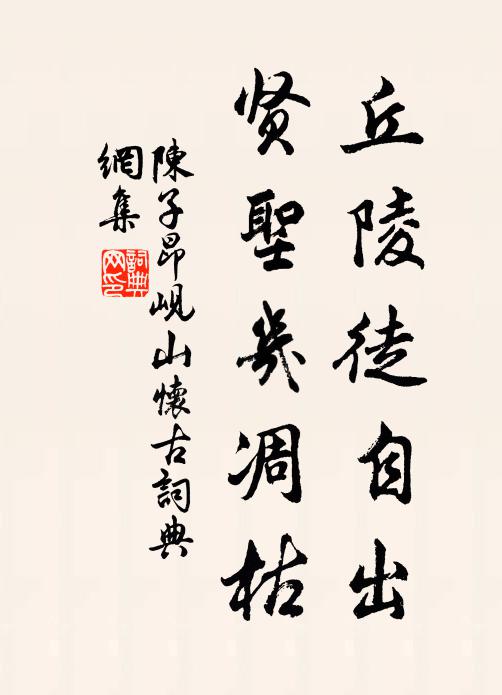 丘陵徒自出
贤聖幾凋枯
陳子昂峴山懷古詞典
網集
詞典
网印